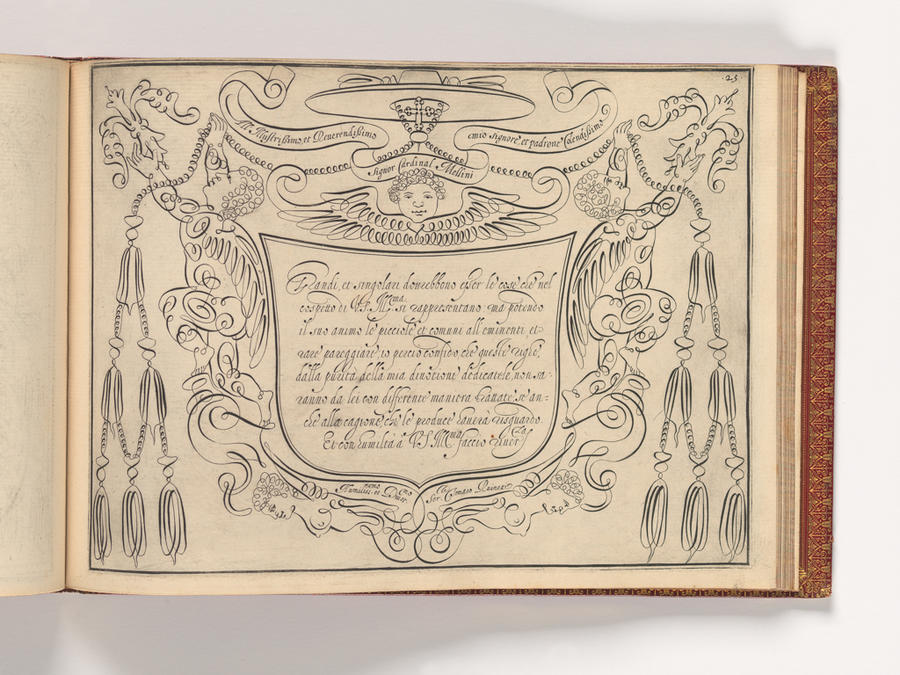 ·25
All' Illustrissimo, et Reverendissimo
mio Signore, et padrone Colendissimo
Signor Cardinal Mellini
Grandi, et singolari dovrebbono esser le cose che nel
cospetto di V.S. Ill.ma si rappresentano, ma potendo
il suo animo le picciole et comuni all' eminenti et
rare pareggiare, io percio confido, che queste righe,
dalla purità della mia divotione dedicatele, non sa-
ranno da lei con differente maniera trattate, se an-
che alla cagione, che le produce haverà risguardo.
Et con humiltà à V.S. Ill.ma faccio river.za
Humiliss.mo et Devot.mo
Ser.